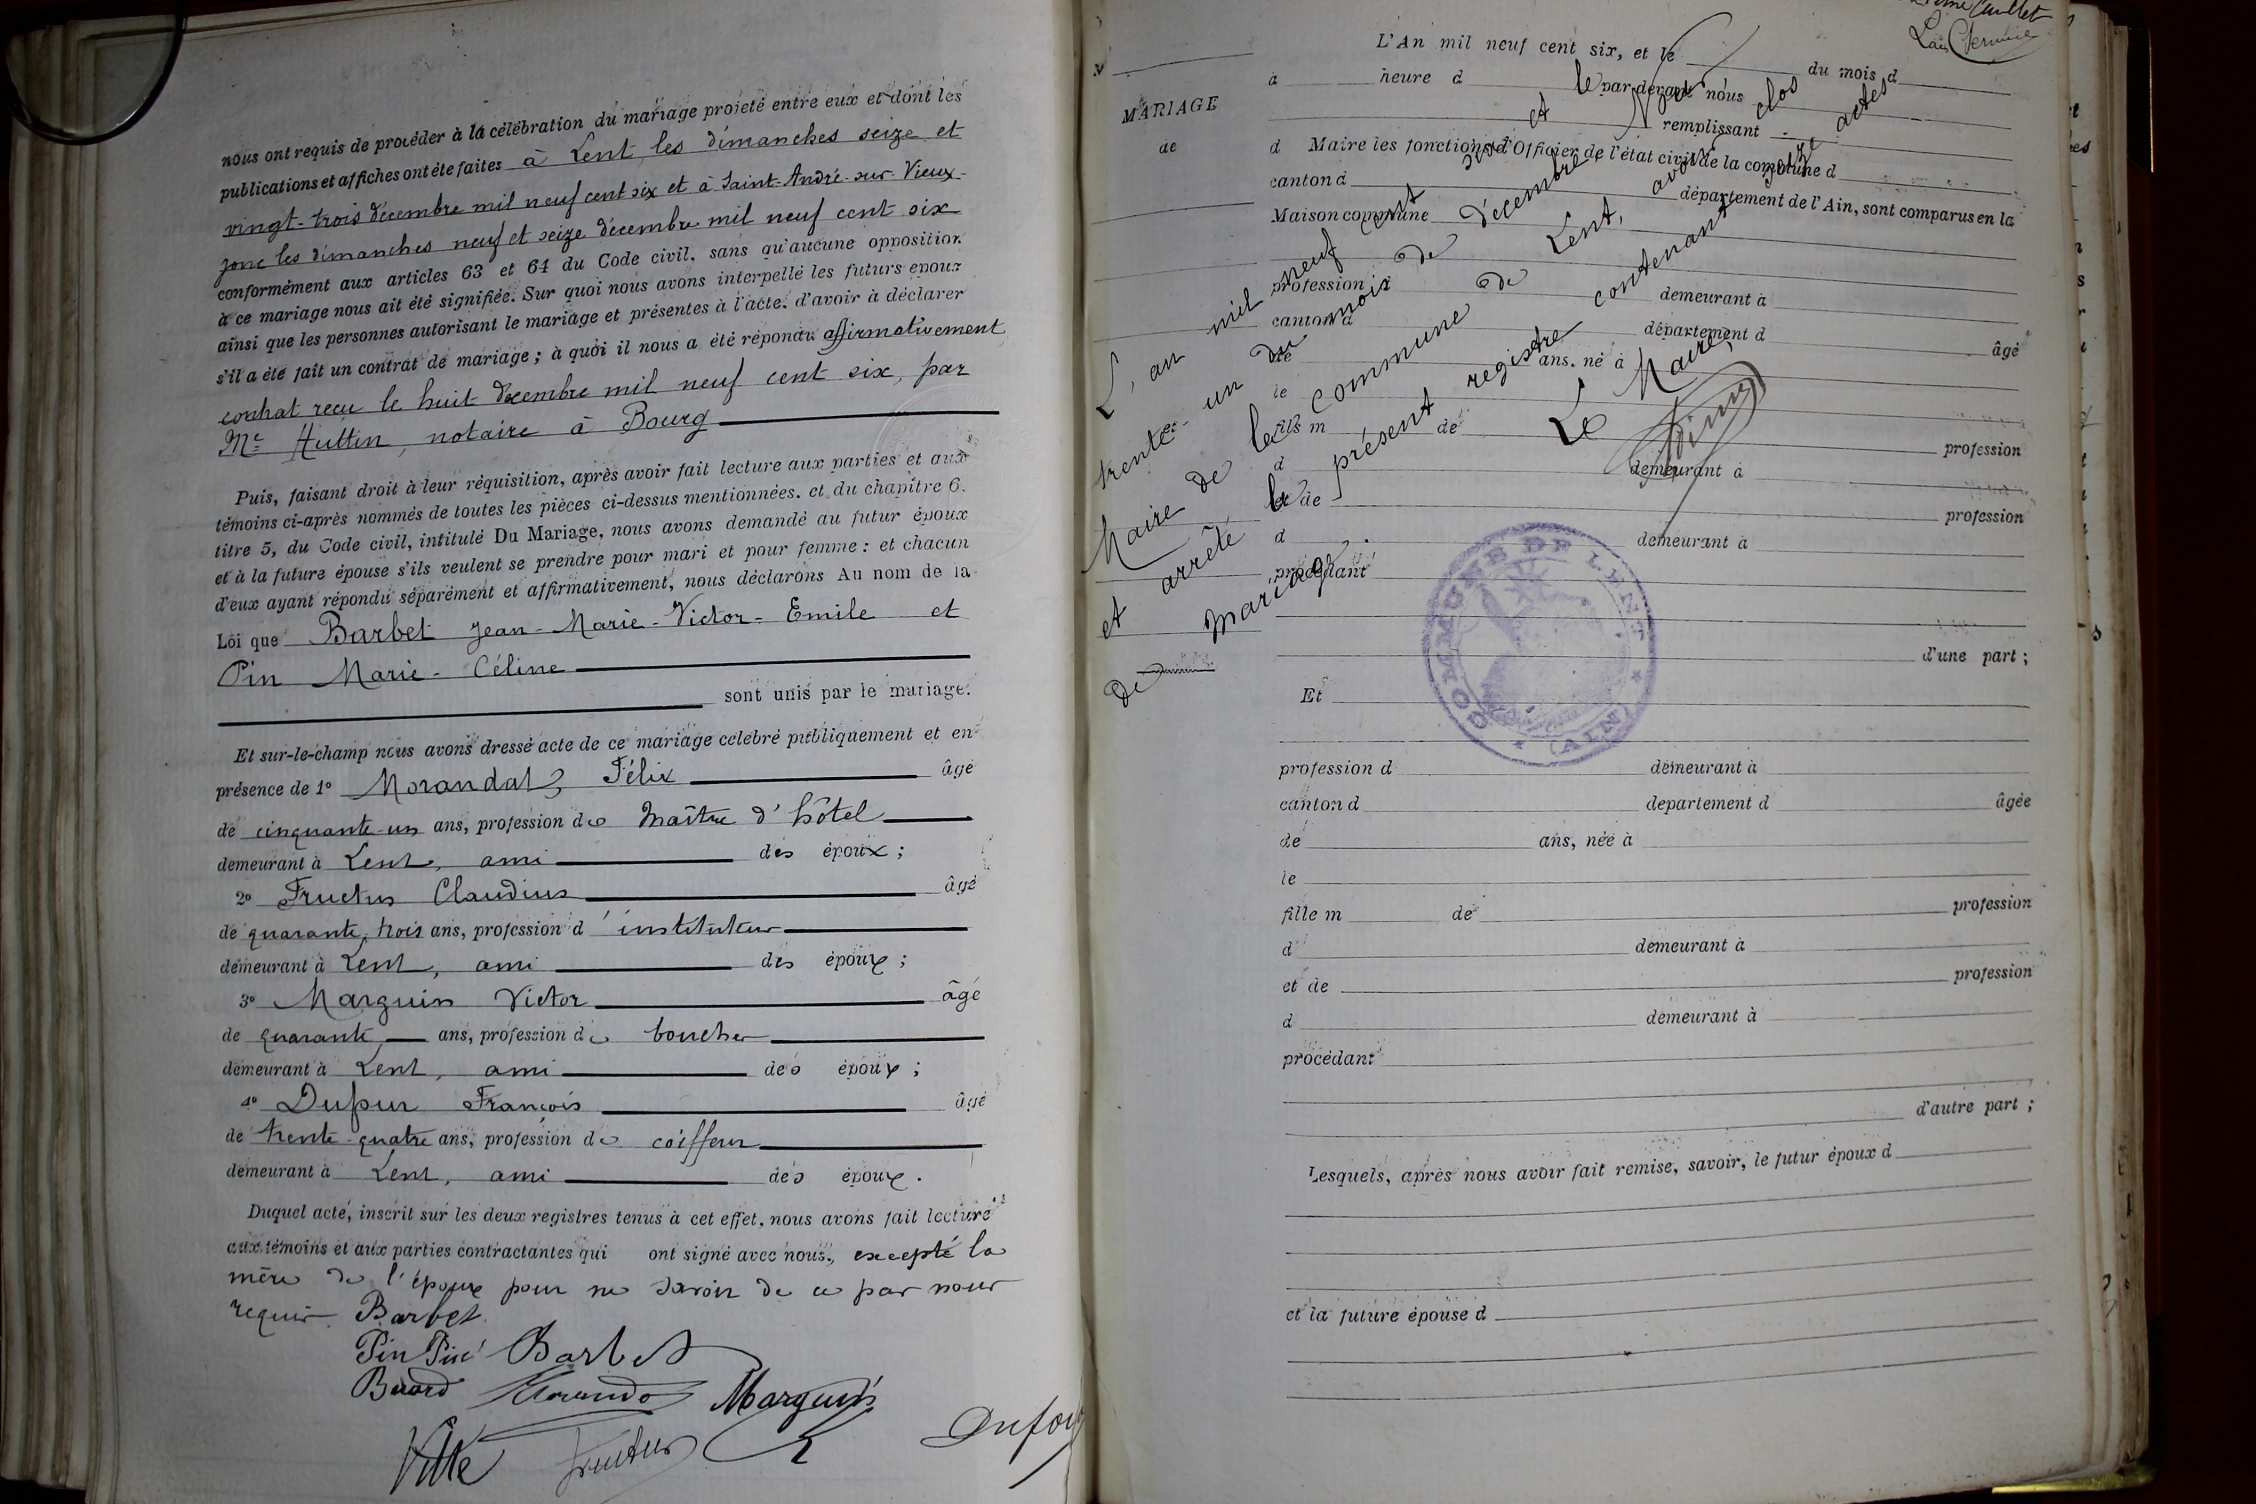 nous ont requis de procéder à la célébration du mariage projeté entre eux et dont les
publications et affiches ont été faites à Lent, les dimanches seize et
vingt-trois décembre mil neuf cent six et à Saint-André-sur-Vieux-
jonc les dimanches neuf et seize décembre mil neuf cent six
conformément aux articles 63 et 64 du Code civil, sans qu'aucune opposition
à ce mariage nous ait été signifiée. Sur quoi nous avons interpellé les futurs époux
ainsi que les personnes autorisant le mariage et présentes à l'acte, d'avoir à déclarer
s'il a été fait un contrat de mariage ; à quoi il nous a été répondu affirmativement
contrat reçu le huit décembre mil neuf cent six, par
Me notaire à Bourg
Puis, faisant droit à leur réquisition, après avoir fait lecture aux parties et aux
témoins ci-après nommés de toutes les pièces ci-dessus mentionnées, et du chapitre 6,
titre 5, du Code civil, intitulé Du Mariage, nous avons demandé au futur époux
et à la future épouse s'ils veulent se prendre pour mari et pour femme : et chacun
d'eux ayant répondu séparément et affirmativement, nous déclarons Au nom de la
Loi que Barbet Jean-Marie-Victor-Emile et
Pin Marie-Céline
sont unis par le mariage.
Et sur-le-champ nous avons dressé acte de ce mariage célébré publiquement et en
présence de 1o Morandat, Félix âgé
de cinquante-un ans, profession de Maître d'hôtel
demeurant à Lent, ami des époux ;
2o Fructus Claudius âgé
de quarante-trois ans, profession d'instituteur
demeurant à Lent, ami des époux ;
3o Marguin Victor âgé
de quarante ans, profession de boucher
demeurant à Lent, ami des époux ;
4o Dufour François âgé
de trente-quatre ans, profession de coiffeur
demeurant à Lent, ami des époux.
Duquel acte, inscrit sur les deux registres tenus à cet effet, nous avons fait lecture
aux témoins et aux parties contractantes qui ont signé avec nous, excepté la
mère de l'époux pour ne savoir de ce par nous
requis. Barbet
Pin Barbet
Morandat Marguin
Fructus Dufour
L'An mil neuf cent six, et le du mois d
à heure d par devant nous
remplissant
MARIAGE
de
d Maire les fonctions d'Officier de l'état civil de la commune d
canton d département de l'Ain, sont comparus en la
Maison commune
profession d demeurant à
canton d département d âgé
de ans, né à
le
fils m de profession
d demeurant à
et de profession
d demeurant à
procédant
d'une part ;
L'an mil neuf cent six et le
trente-un du mois de décembre, Nous
Maire de la commune de Lent, avons clos
et arrêté le présent registre contenant seize actes
de mariage.
Le Maire,
COMMUNE DE LENT
(AIN)
Et
profession d demeurant à
canton d département d âgée
de ans, née à
le
fille m de profession
d demeurant à
et de profession
d demeurant à
procédant
d'autre part ;
Lesquels, après nous avoir fait remise, savoir, le futur époux d
et la future épouse d